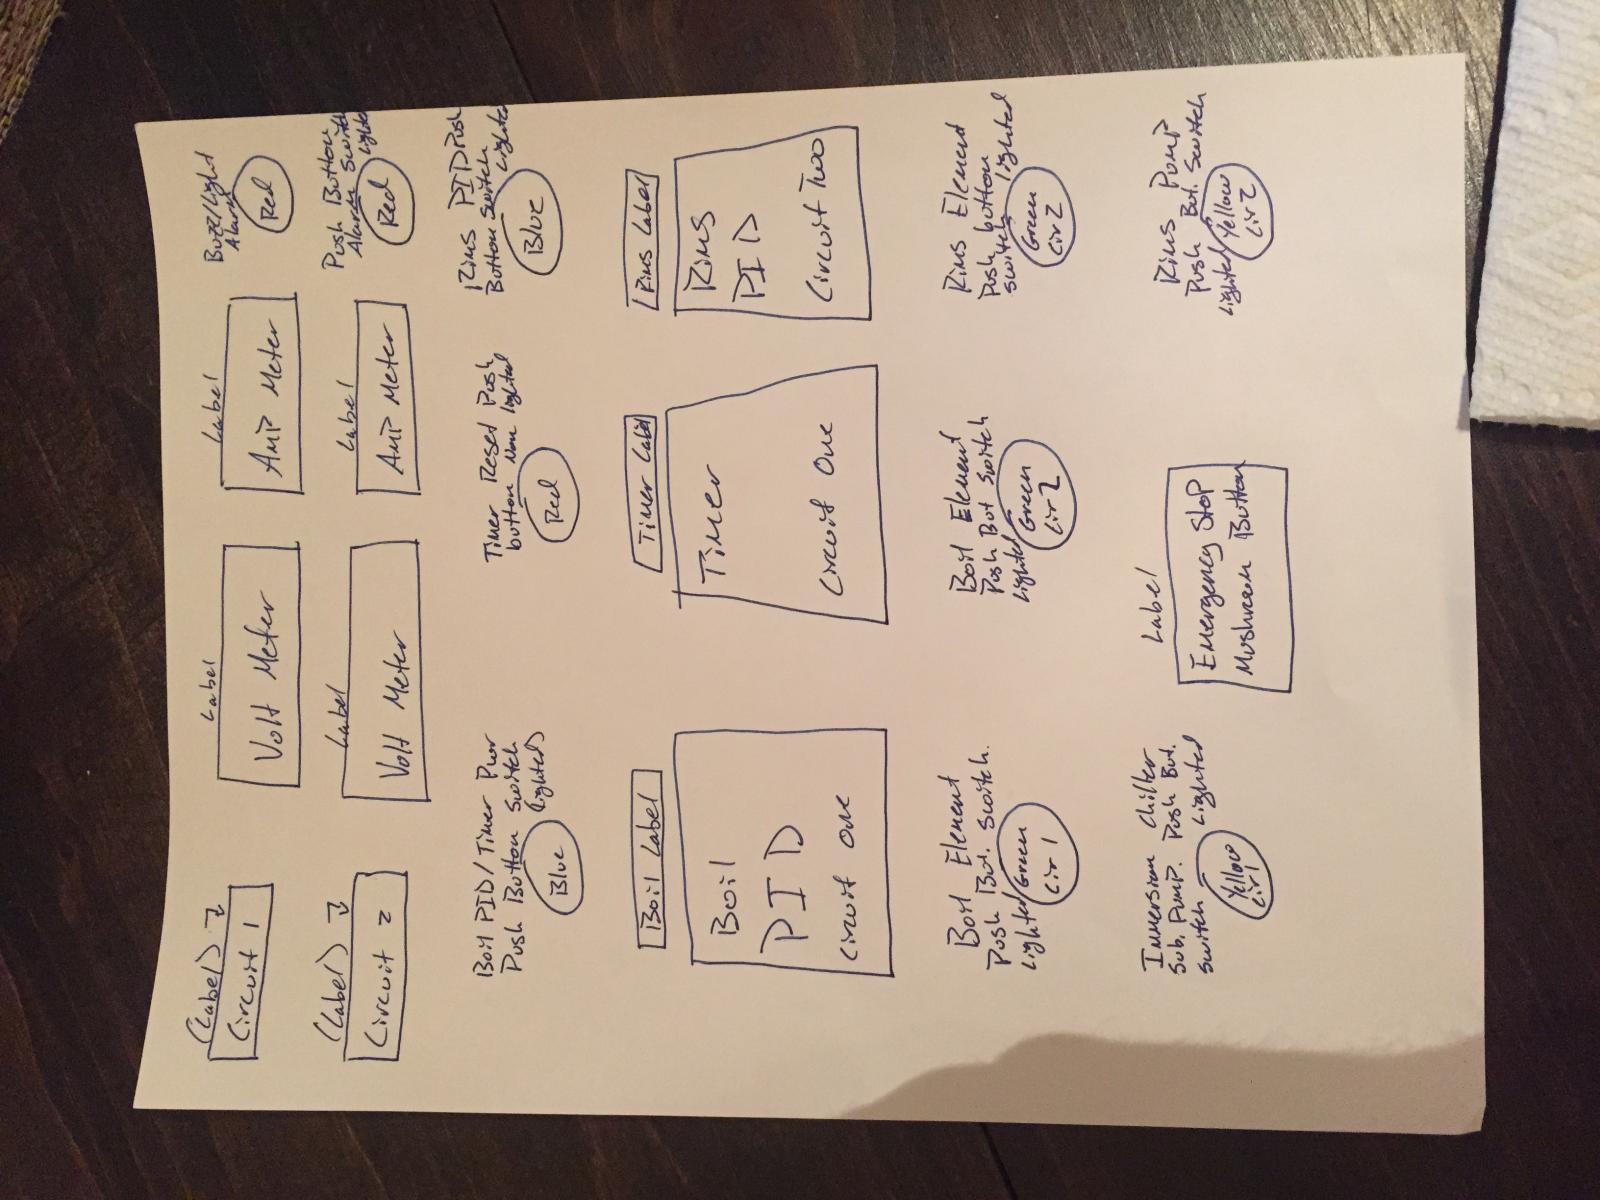 (Label)
Circuit 1
Label
Volt Meter
Label
Amp Meter
Buzz/Light
Alarm
Red
(Label)
Circuit 2
Label
Volt Meter
Label
Amp Meter
Push Button
Alarm Switch
lighted
Red
Boil PID/Timer Pwr
Push Button Switch
(lighted)
Blue
Timer Reset Push
button Non lighted
Red
Rims PID Push
Button Switch
Lighted
Blue
Boil Label
Boil
PID
Circuit one
Timer Label
Timer
Circuit One
Rims Label
Rims
PID
Circuit Two
Boil Element
Push But. Switch.
Lighted
Green
Cir 1
Boil Element
Push But Switch
Lighted
Green
Cir 2
Rims Element
Push button
switch lighted
Green
Cir 2
Immersion Chiller
Sub. Pump. Push But.
Switch Lighted
Yellow
Cir 1
Label
Emergency Stop
Mushroom Button
Rims Pump
Push But. Switch
Lighted
Yellow
Cir 2